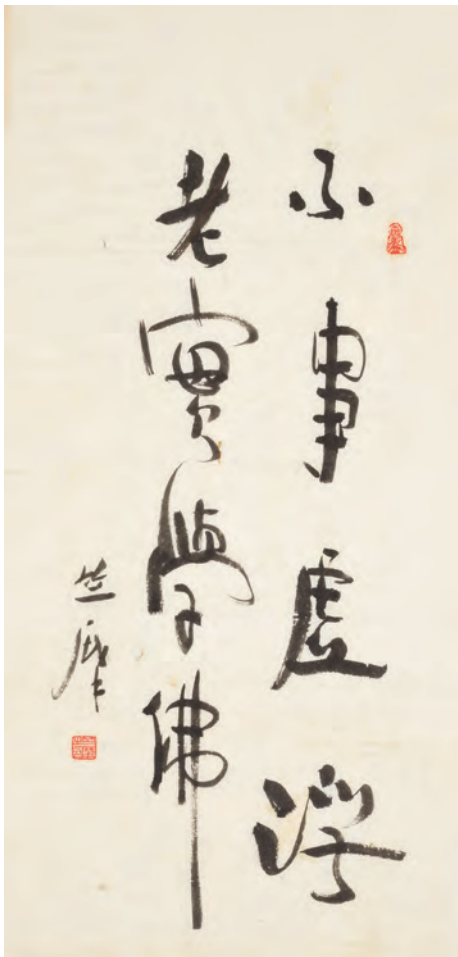 不事虛浮
老實學佛
竺摩